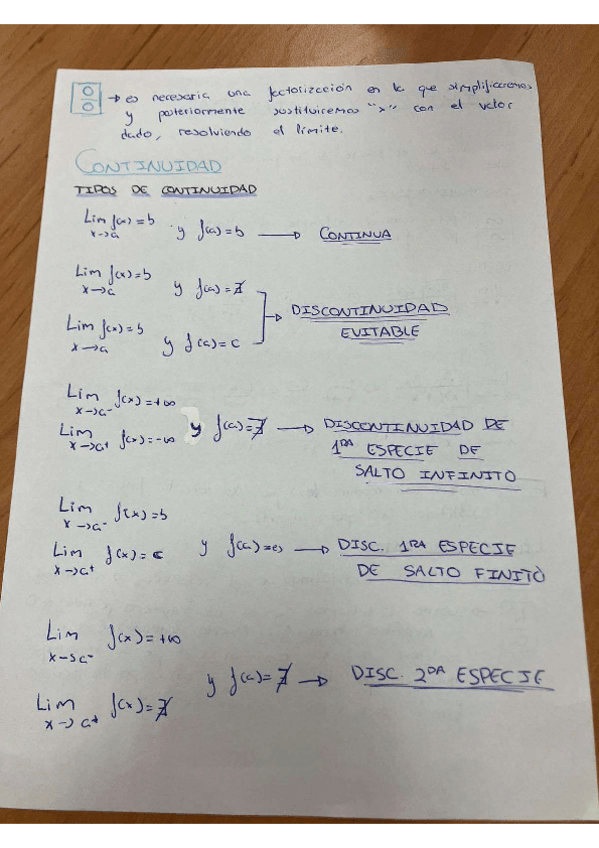 0/0 → es necesaria una factorización en la que simplificaremos
y posteriormente sustituiremos "x" con el valor
dado, resolviendo el límite.
CONTINUIDAD
TIPOS DE CONTINUIDAD
Lim f(x)=b
x→a
y f(a)=b → CONTINUA
Lim f(x)=b
x→a
y f(a)=∄
Lim f(x)=b
x→a
y f(a)=c
→ DISCONTINUIDAD
EVITABLE
Lim f(x)=+∞
x→a⁻
Lim f(x)=-∞
x→a⁺
y f(a)=∄ → DISCONTINUIDAD DE
1RA ESPECIE DE
SALTO INFINITO
Lim f(x)=b
x→a⁻
Lim f(x)=c
x→a⁺
y f(a)= → DISC. 1RA ESPECIE
DE SALTO FINITO
Lim f(x)=+∞
x→a⁻
Lim f(x)=∄
x→a⁺
y f(a)=∄ → DISC. 2DA ESPECIE